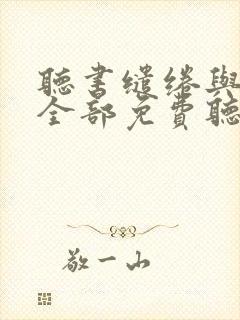 聽書繾綣與
全部免費聽
敬一山